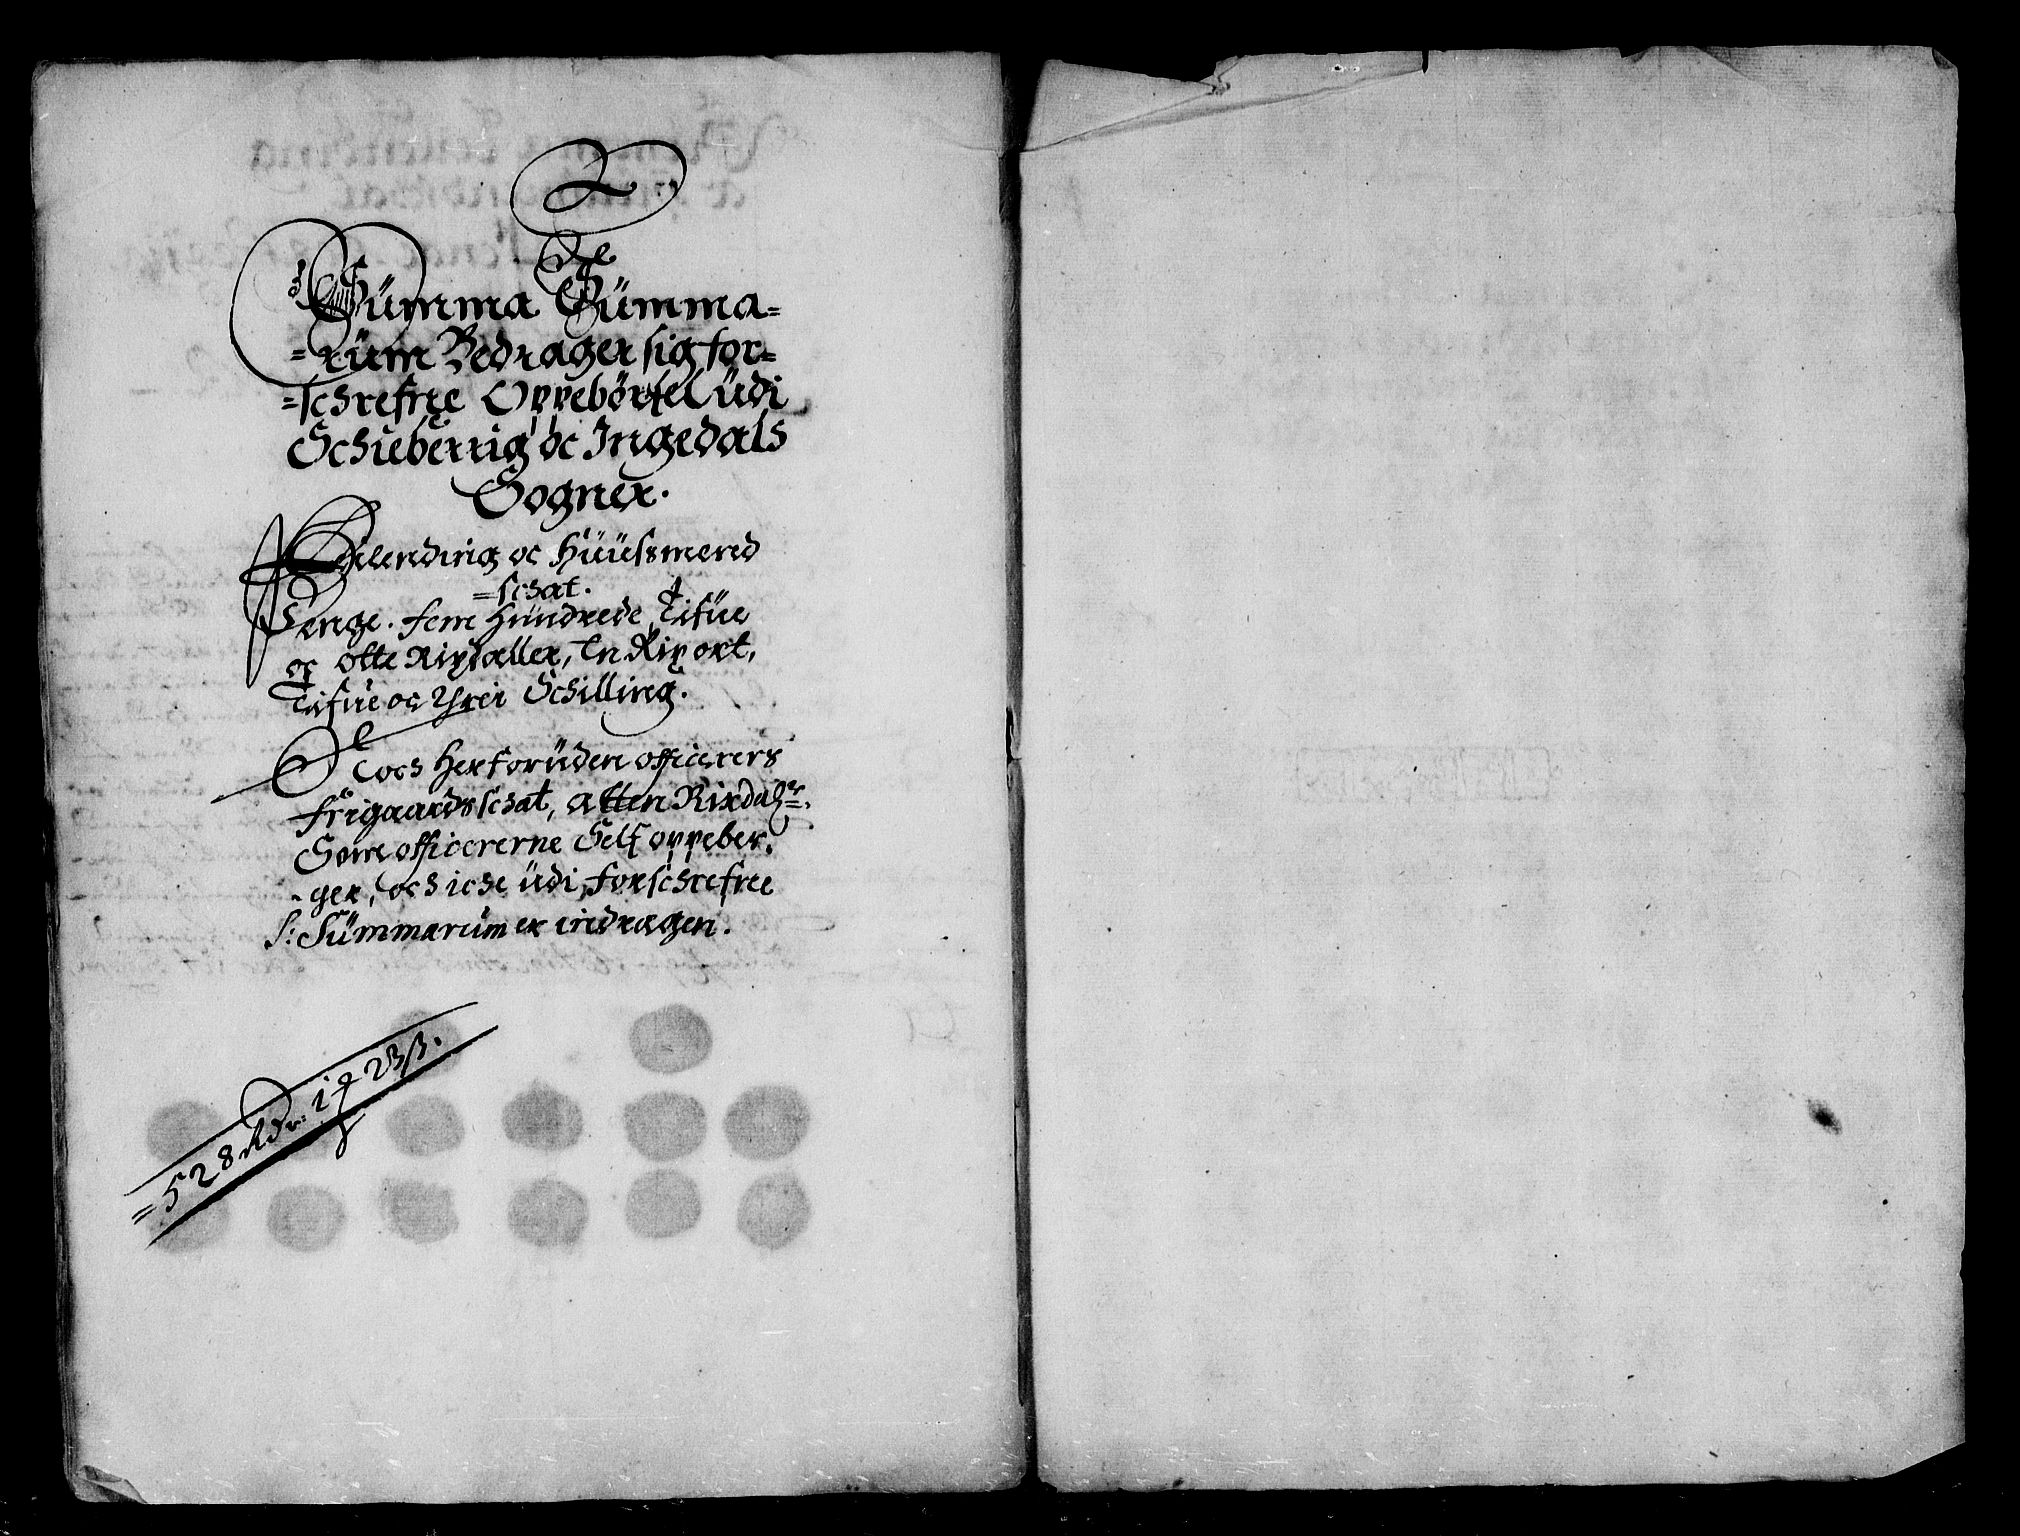 Summa Summa=
=rüm Bedrager sig for=
=schrefne Oppebörsel üdi
Schieberrig oc Ingedals
Sogner.
Leilending oc Hüüssmend
=schat.
Penge. fem Hündrede Tifüe
oc otte Rixdaller, En Rix ort,
Tifüe oc Threi Schilling.
Doch Herforüden officerers
frigaards schat, Atten Rixdalr=.
Som officererne Self oppeber,
-ger, och iche üdi forschrefne
S: Sümmarum er indragen.
=528 Rdr: 1 23 ß.